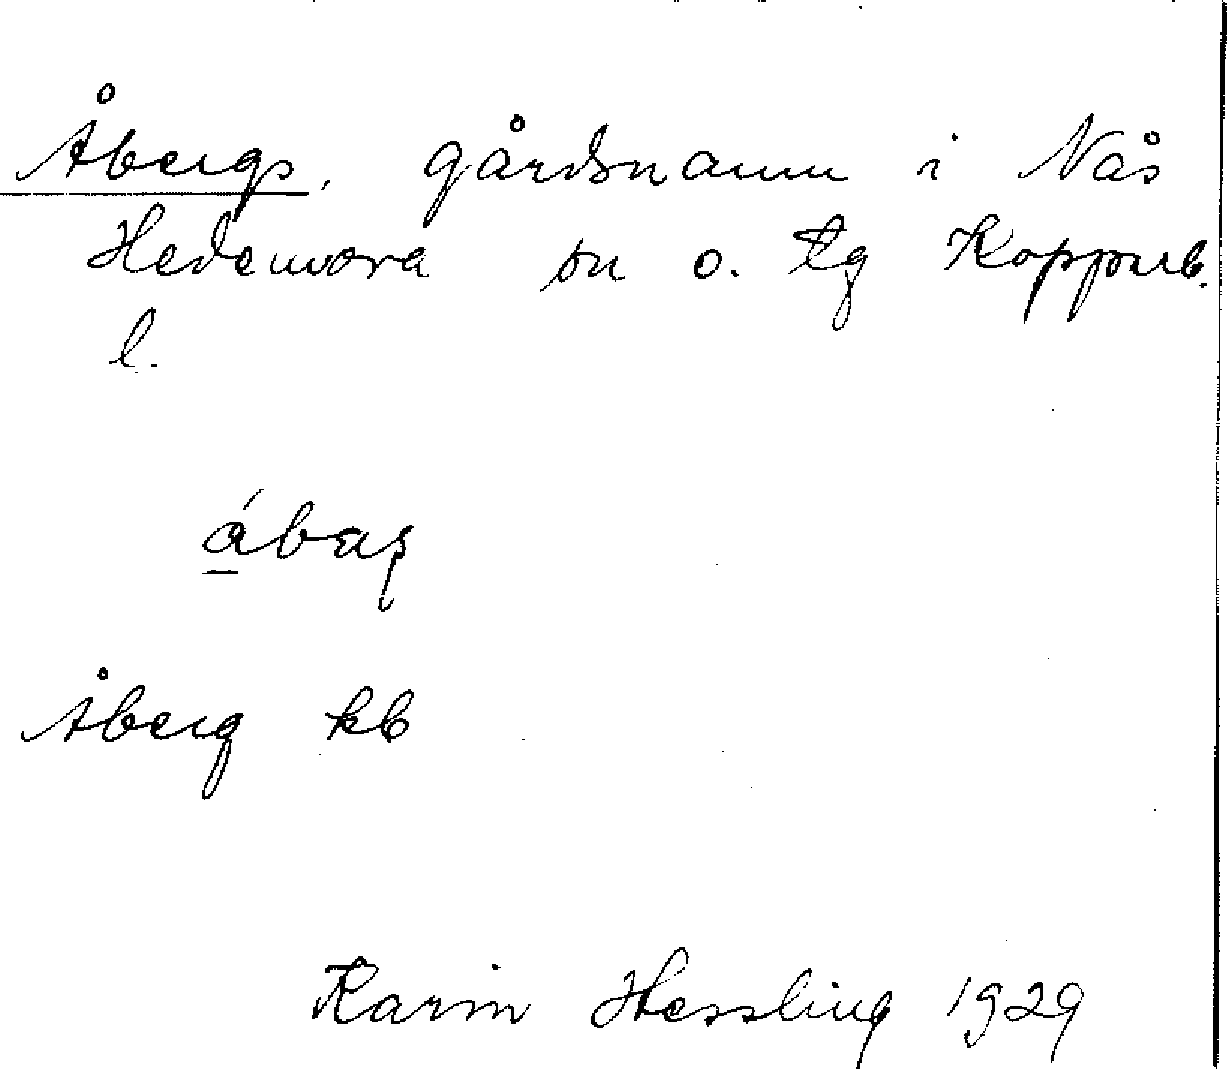 Åbergs, gårdsnamn i Nås
Hedemora sn o. tg Kopparb.
l.
ábaș
Åberg kb
Karin Hessling 1929